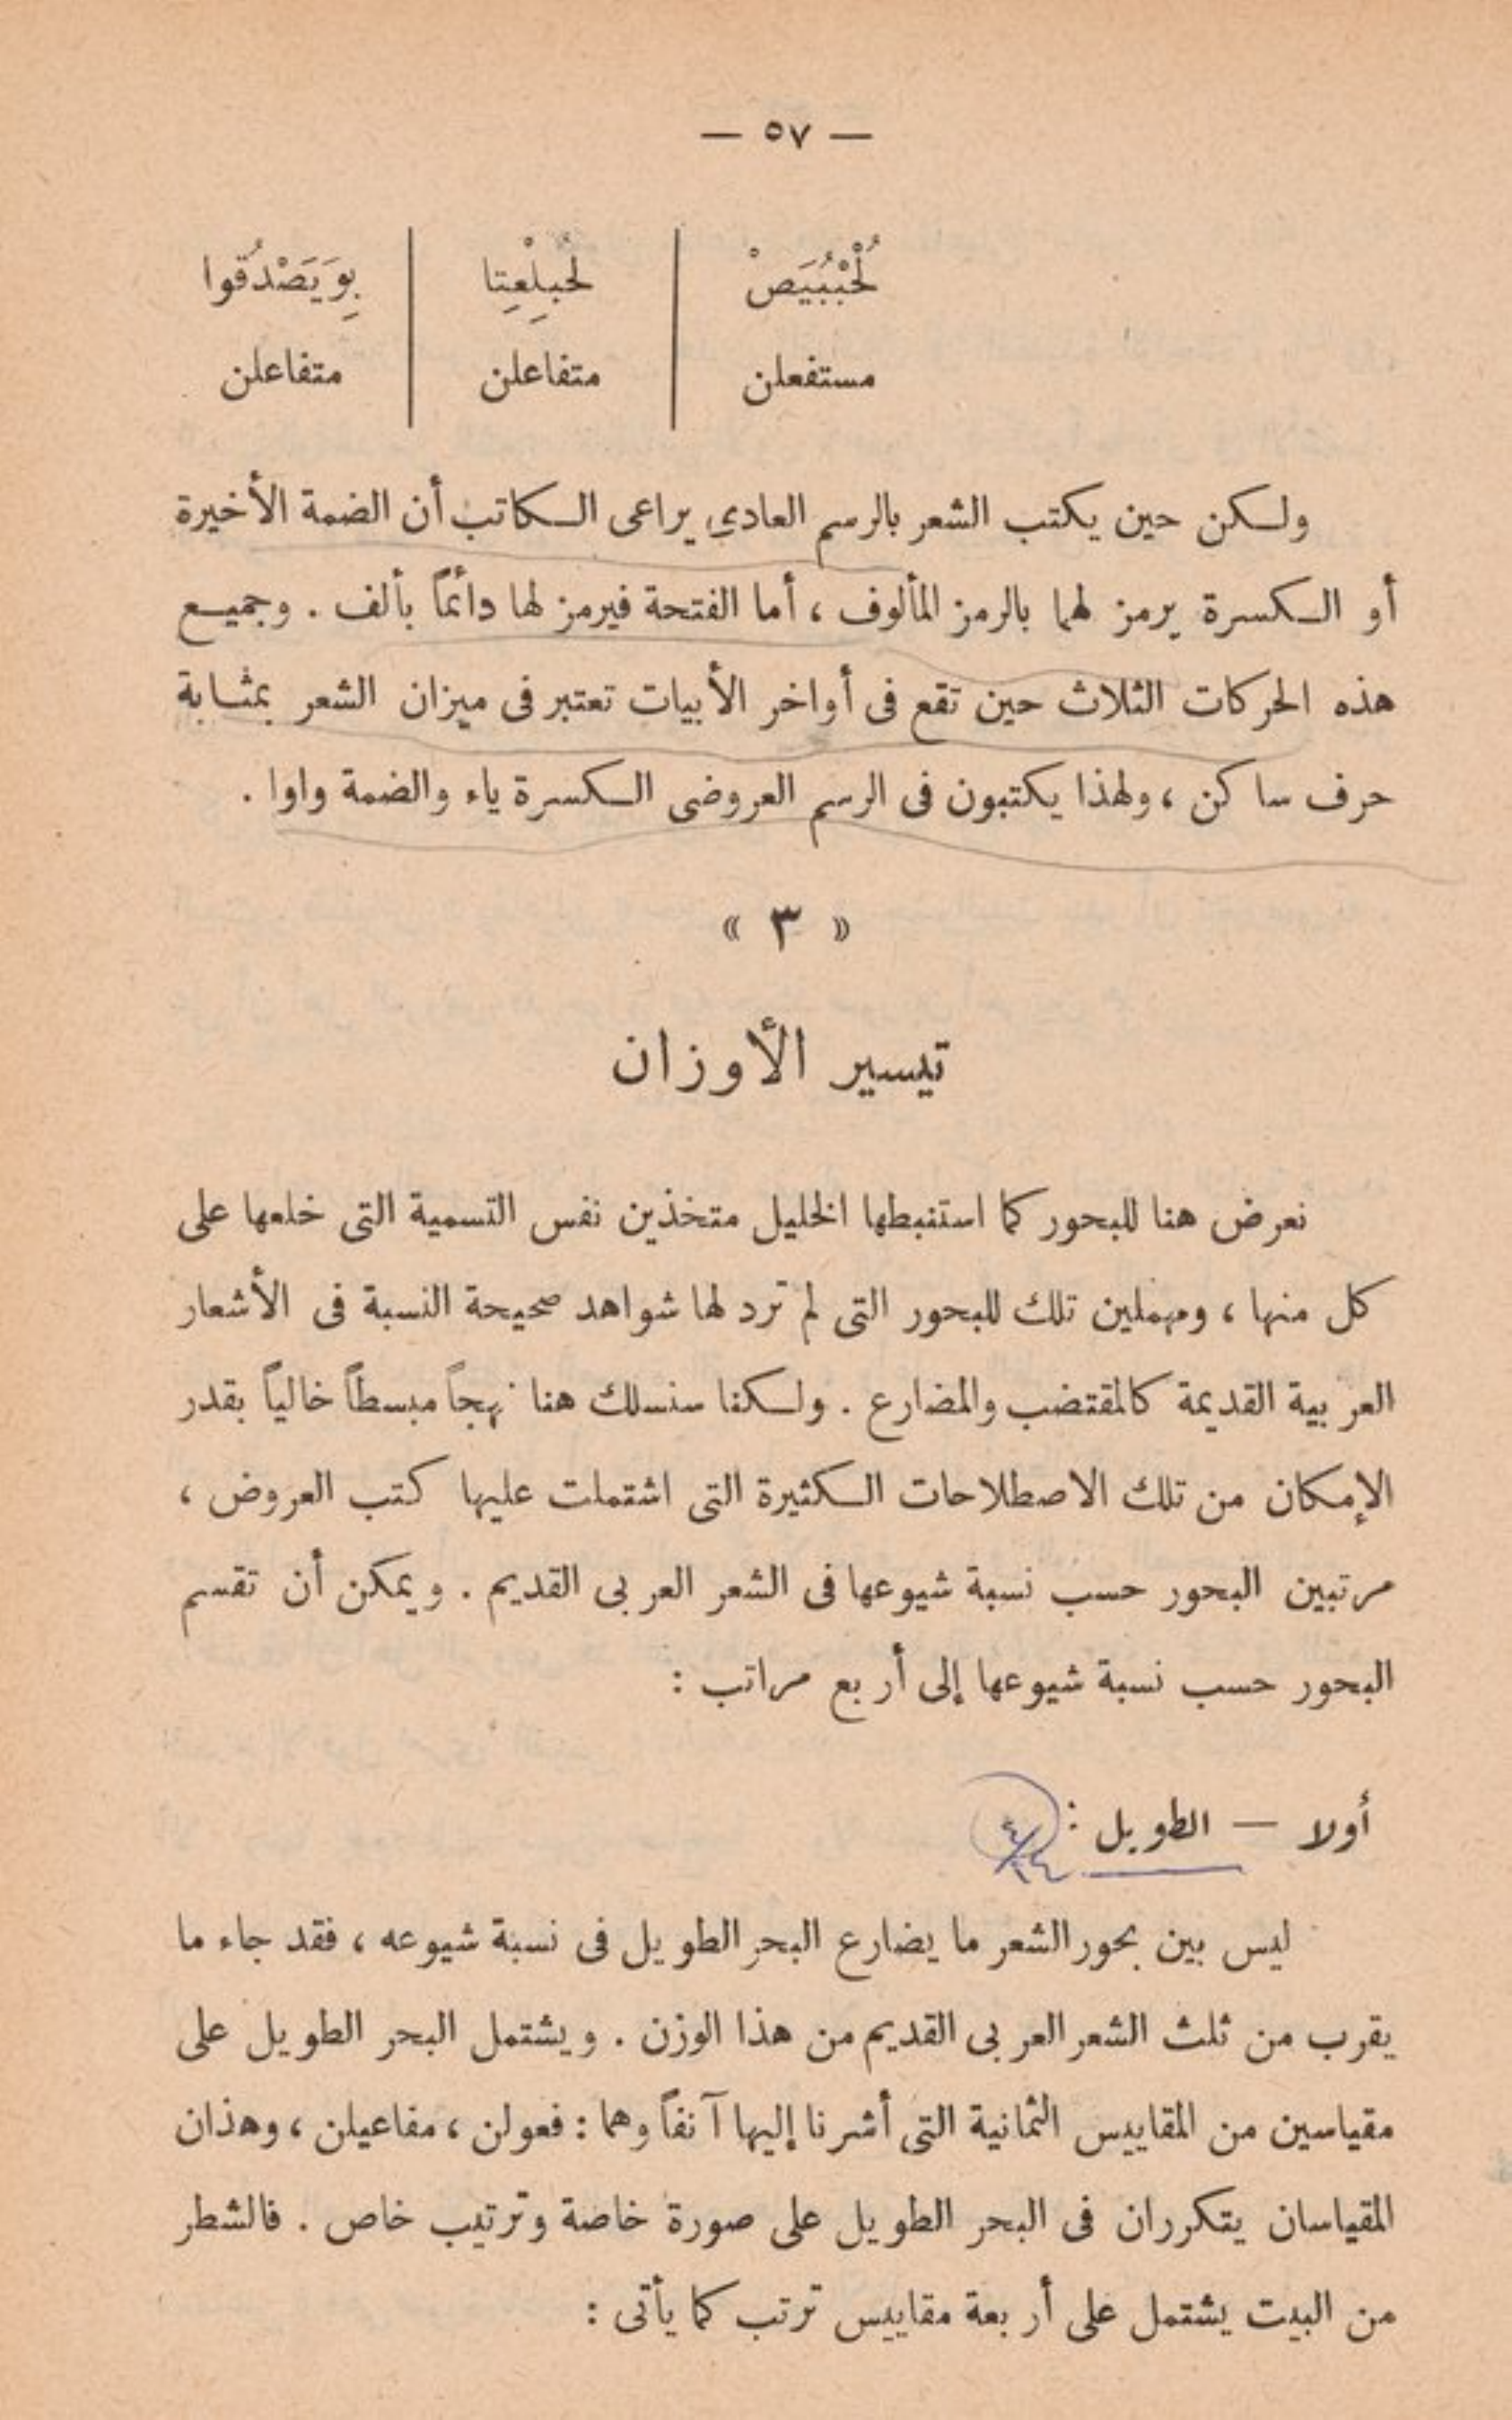 — ٥٧ —
لُحْبْبُيَصْ | لحُبِلْعِتا | بِوَيَصْدُقوا
مستفعلن | متفاعلن | متفاعلن
ولكن حين يكتب الشعر بالرسم العادي يراعى الكاتب أن الضمة الأخيرة
أو الكسرة يرمز لهما بالرمز المألوف ، أما الفتحة فيرمز لها دائماً بألف . وجميع
هذه الحركات الثلاث حين تقع فى أواخر الأبيات تعتبر فى ميزان الشعر بمثابة
حرف ساكن ، ولهذا يكتبون فى الرسم العروضى الكسرة ياء والضمة واوا .
« ٣ »
تيسير الأوزان
نعرض هنا للبحور كما استنبطها الخليل متخذين نفس التسمية التى خلعها على
كل منها ، ومهملين تلك للبحور التى لم ترد لها شواهد صحيحة النسبة فى الأشعار
العربية القديمة كالمقتضب والمضارع . ولكنا سنسلك هنا نهجاً مبسطاً خالياً بقدر
الإمكان من تلك الاصطلاحات الكثيرة التى اشتملت عليها كتب العروض ،
مرتبين البحور حسب نسبة شيوعها فى الشعر العربى القديم . ويمكن أن تقسم
البحور حسب نسبة شيوعها إلى أربع مراتب :
أولا — الطويل :
ليس بين بحور الشعر ما يضارع البحر الطويل فى نسبة شيوعه ، فقد جاء ما
يقرب من ثلث الشعر العربى القديم من هذا الوزن . ويشتمل البحر الطويل على
مقياسين من المقاييس الثمانية التى أشرنا إليها آنفاً وهما : فعولن ، مفاعيلن ، وهذان
المقياسان يتكرران فى البحر الطويل على صورة خاصة وترتيب خاص . فالشطر
من البيت يشتمل على أربعة مقاييس ترتب كما يأتى :